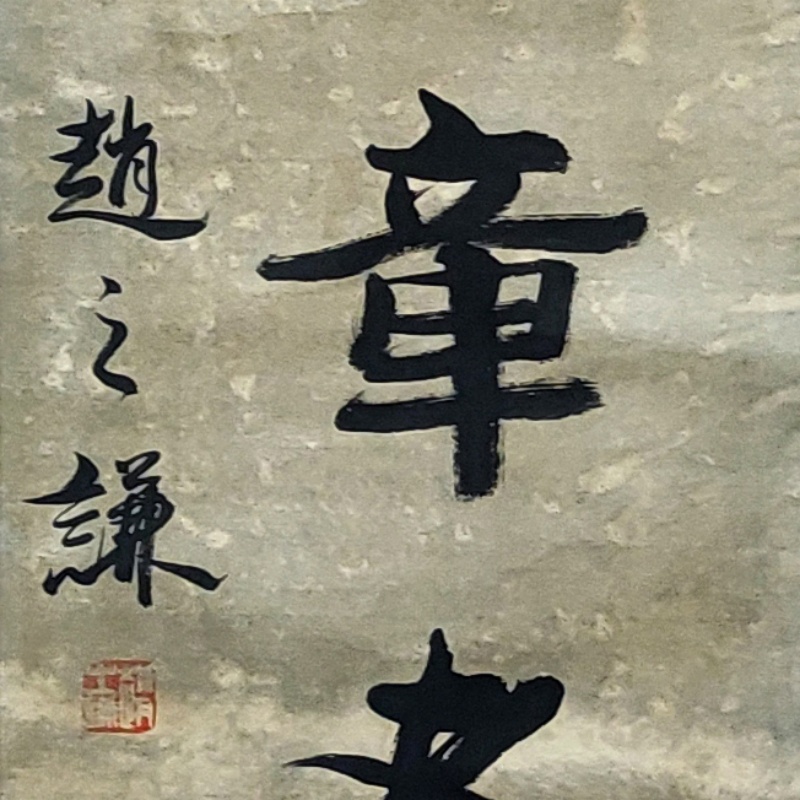 章
趙之謙